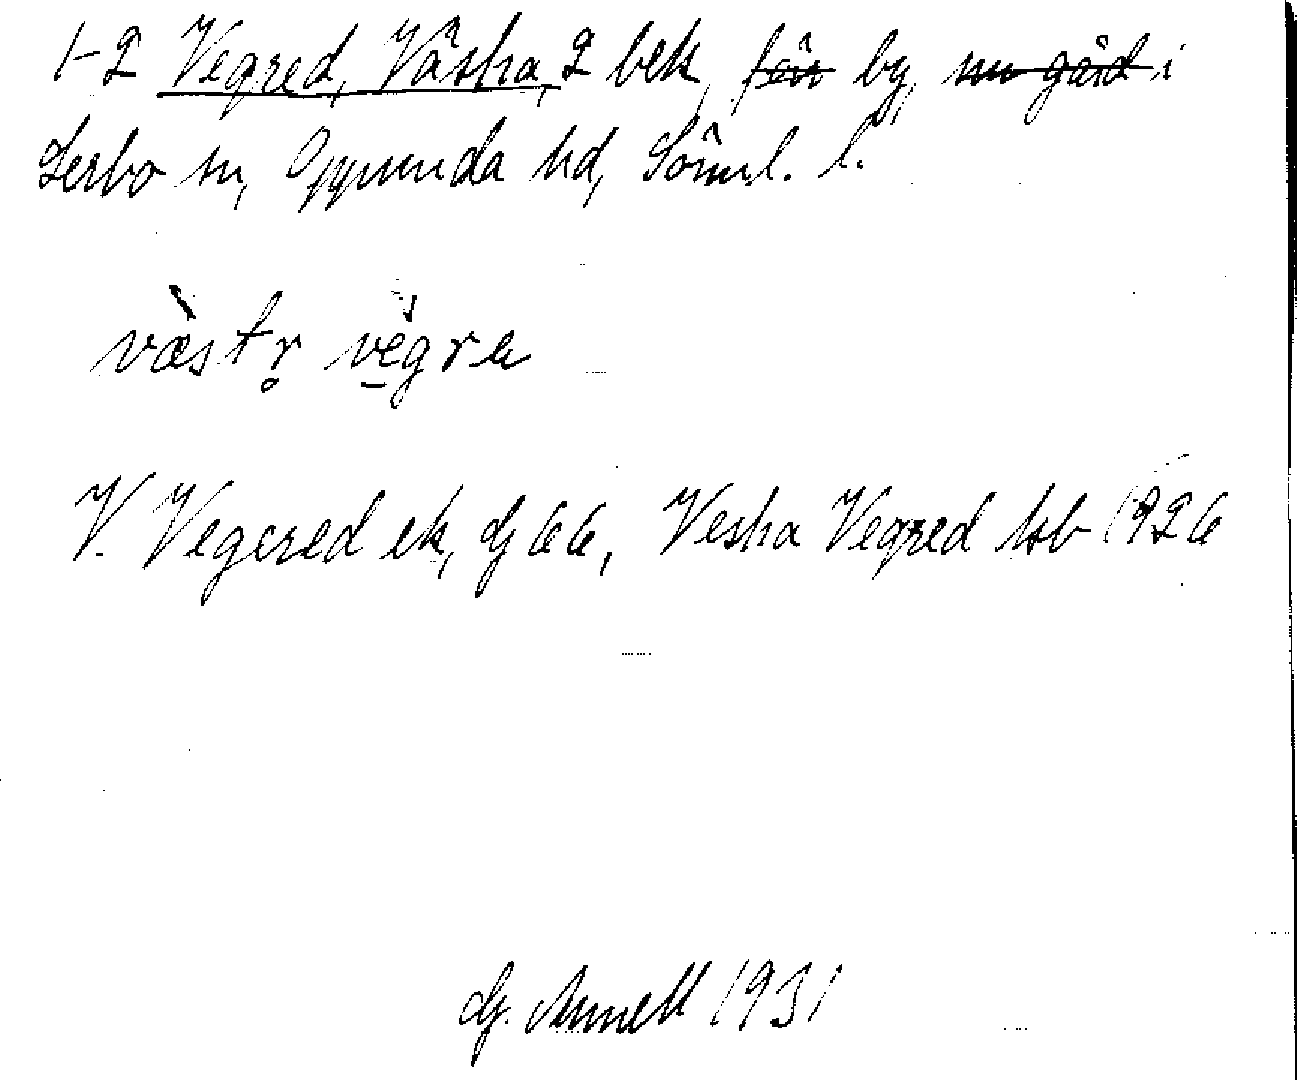 1-2 Vegred, Västra, 2 bek, förr by, nu gård i
Lerbo sn, Oppunda hd, Söml. l.
væstr̥ vegra
V. Vegered ek, Gj 66, Vestra Vegred Jsb 1926
G. Annell 1931